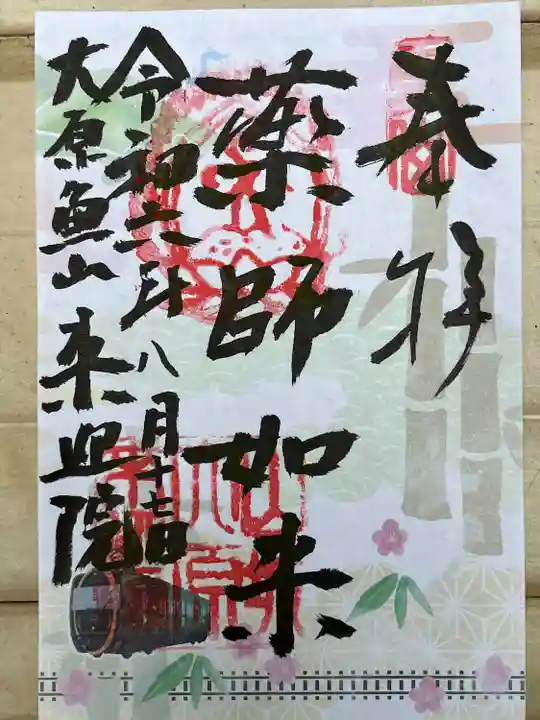 奉拝
薬師如来
令和六年八月十七日
大原魚山来迎院